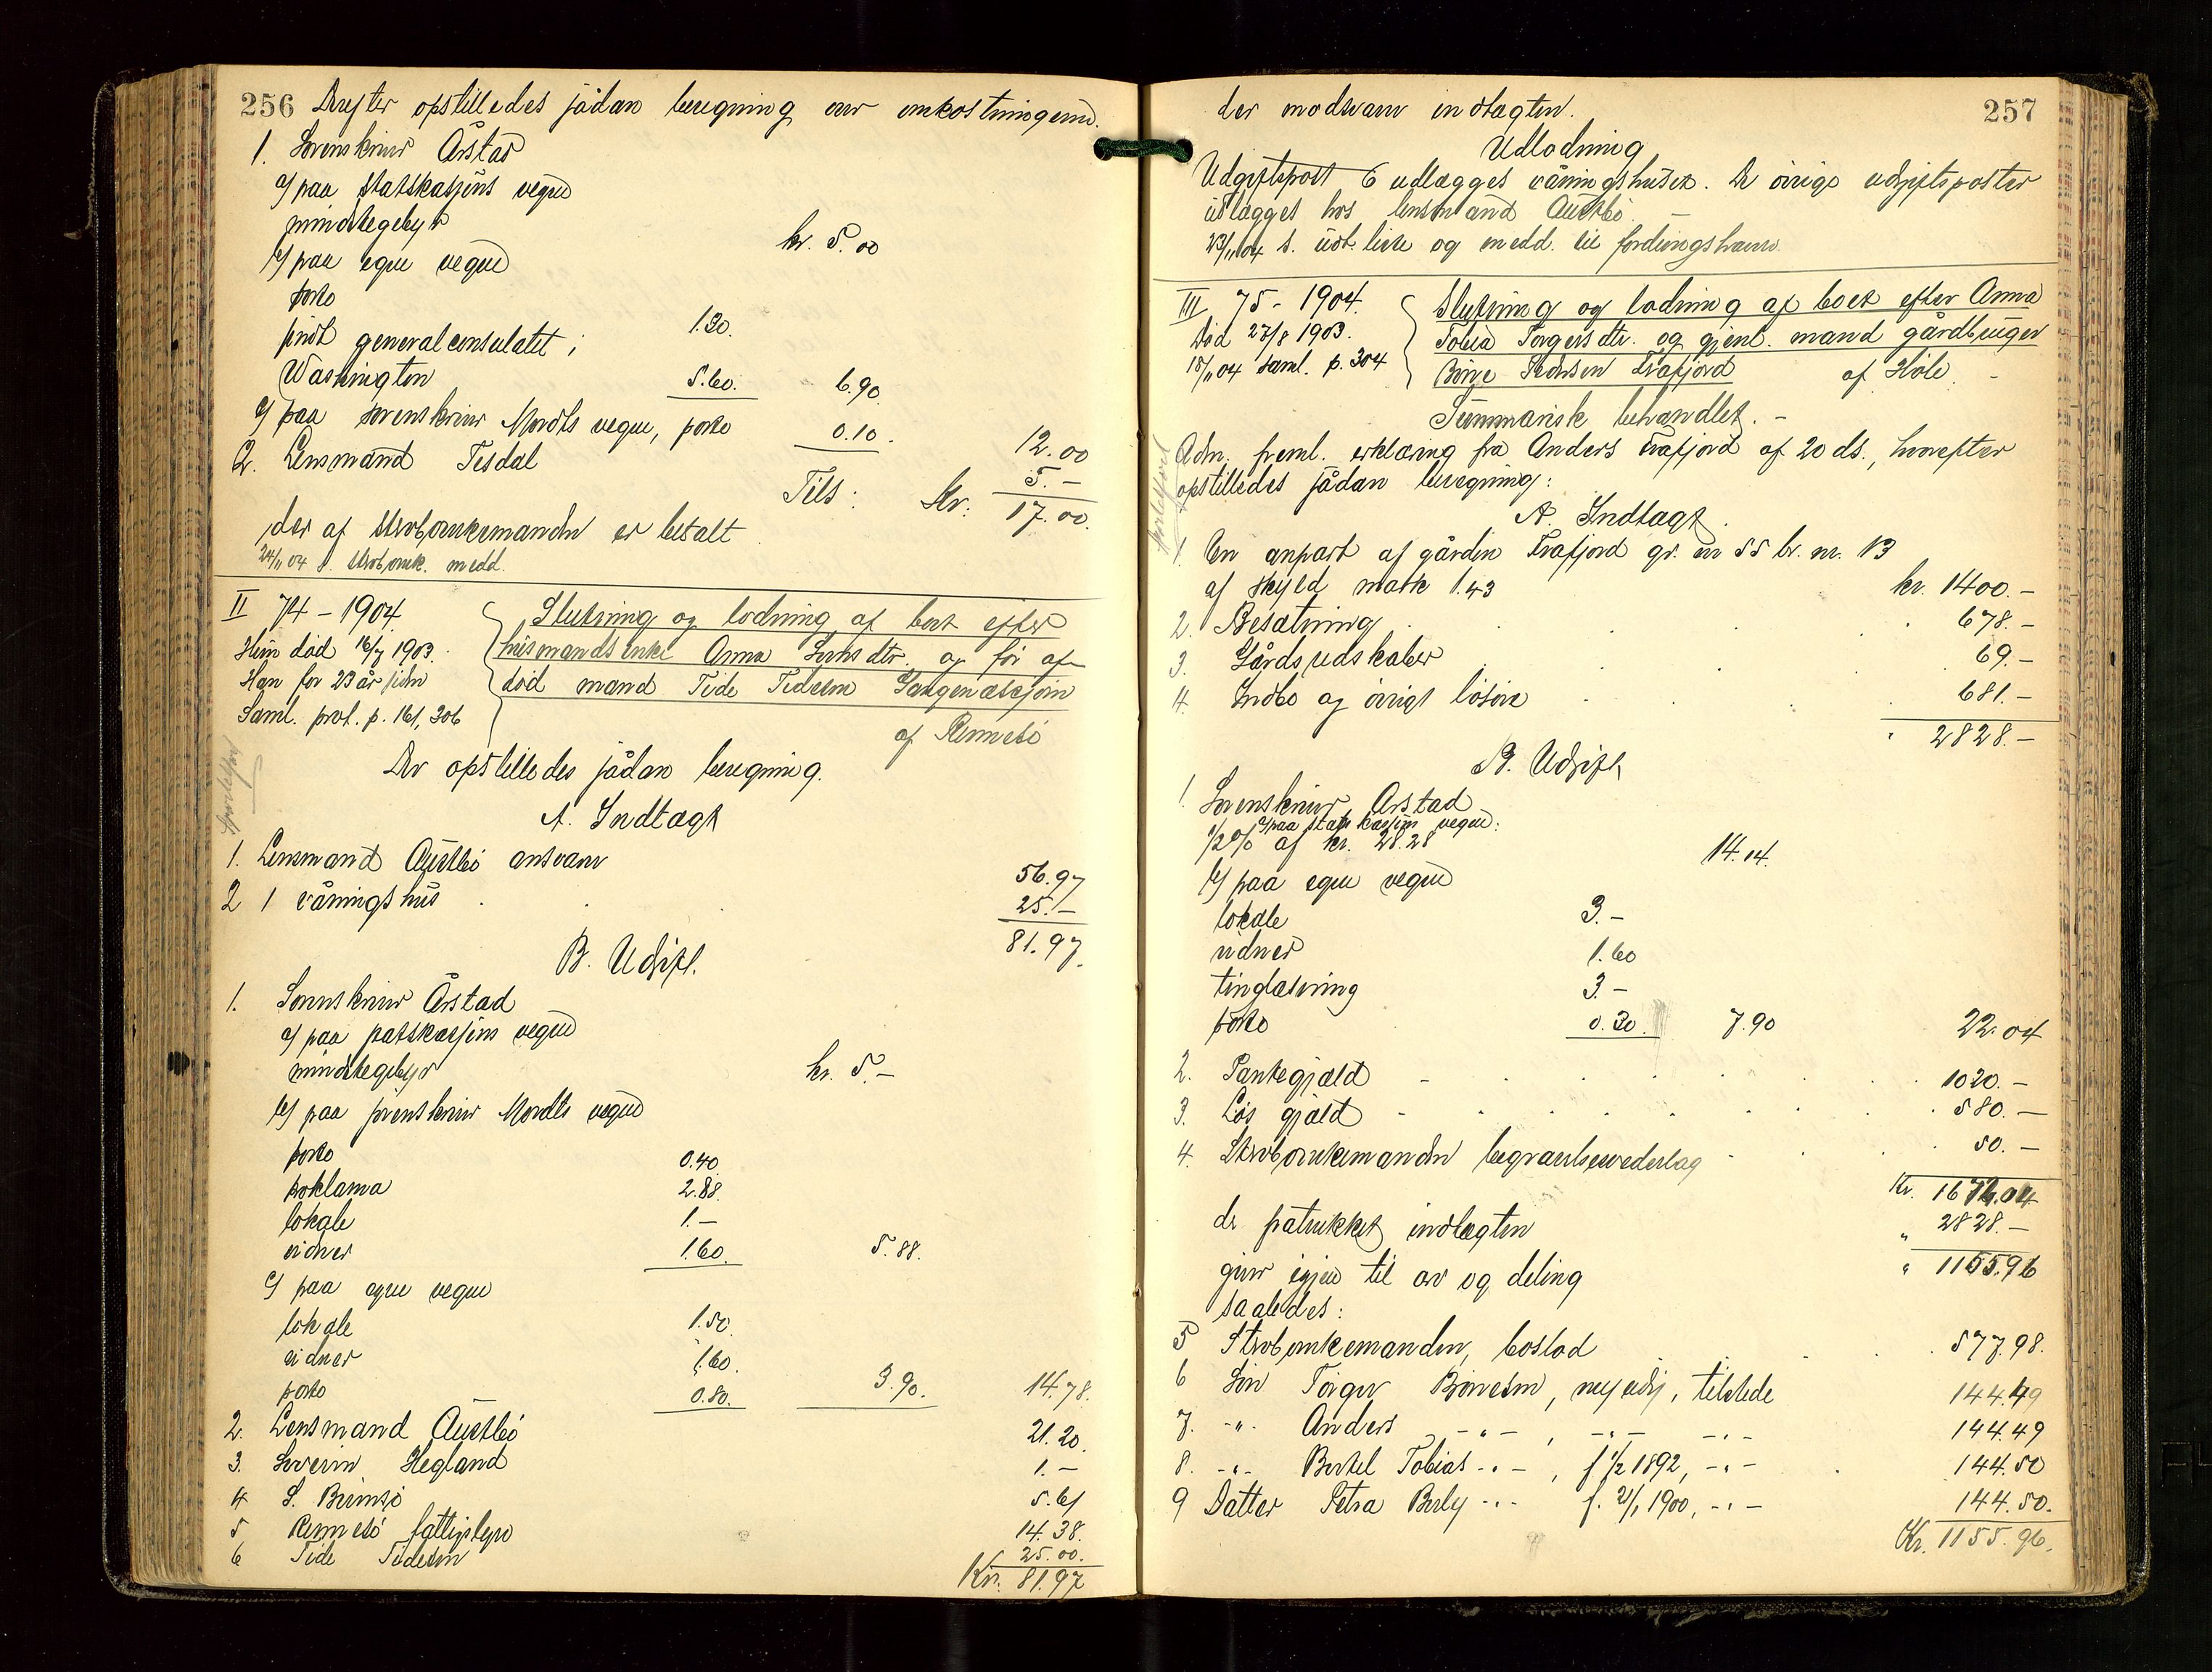 256 Derefter opstilledes sådan beregning over omkostningerne.
1. Sorenskriver Årstad
a/ paa statskassens vegne
mindstegebyr kr. 5.00
b/ paa egne vegne
porto 1.30.
sendt generalconsulatet i
Washington 5.60. " 6.90
c/ paa sorenskriver Mordts vegne, porto 0.10. 12.00
2. Lensmand Tesdal 5.-
Tils: Kr. 17.00.
der af skrbomkemanden er betalt.
24/11 04 s. medd.
II 74 - 1904
Hun död 16/7 1903.
Han for 23 år siden
Saml. prot. p. 161, 306
Slutning og lodning af boet efter
husmandsenke Anna dtr. og för af-
död mand Tide Tidesen
af Rennesö
Der opstilledes sådan beregning.
A. Indtægt
1. Lensmand Austbö ansvarer 56.97
2 1 våningshus 25.-
81.97
B. Udgift.
1. Sorenskriver Årstad
a/ paa statskassens vegne
mindstegebyr kr. 5.-
b/ paa sorenskriver Mordts vegne
porto 0.40
proklama 2.88.
lokale 1.-
vidner 1.60. 5.88.
c/ paa egne vegne
lokale 1.50.
vidner 1.60.
porto 0.80. 3.90. 14.78.
2. Lensmand Austbö 21.20.
3. Severin Hegland 1.-
4 S. Brimsö 5.61
5 Rennesö fattigstyre 14.38.
6 Tide Tidesen 25.00.
Kr. 81.97
257
der modsvarer indtægten.
Udlodning
Udgiftspost 6 udlægges våningshuset. De övrige udgiftsposter
udlægges hos lensmand Austbö. -
23/11 04 s. udt. liste og medd. til fordringshaver.
III 75 - 1904.
Död 27/8 1903.
18/11 04 saml. p. 304
Slutning og lodning af boet efter Anna
Tobia Torgersdtr. og gjenl. mand gårdbruger
Börge Frafjord af Höle. -
Summarisk behandlet. -
Adm. freml. erklæring fra Anders Frafjord af 20 ds., hvorefter
opstilledes sådan beregning:
A. Indtægt.
1. En anpart af gården Frafjord gr. nr 55 br. nr. 13
af skyld mark 1.43 kr. 1400.-
2. Besætning 678.-
3. Gårdsredskaber 69.-
4. Indbo og övrigt lösöre 681.-
" 2828.-
B. Udgift.
1. Sorenskriver Årstad
a/ paa statskassens vegne:
1/2 % af kr. 28.28 14.14.
b/ paa egne vegne
lokale 3.-
vidner 1.60
tinglæsning 3.-
porto 0.30. 7.90 22.04
2. Pantegjæld - 1020.-
3. Lös gjæld - 580.-
4. Skrbomkemanden begravelsesvederlag 50.-
Kr. 1672.04
der fratrukket indtægten " 2828.-
giver igjen til arv og deling " 1155.96
saaledes:
5 Skrbomkemanden, boslod 577.98.
6 Sön Torger Börgesen, myndig, tilstede 144.49
7. -"- Anders -"-, -"- -"- 144.49
8. -"- Bertel Tobias -"-, f 1/2 1892, -"- 144.50
9 Datter Petra Berly -"- f. 21/1 1900, -"- 144.50.
Kr. 1155.96.